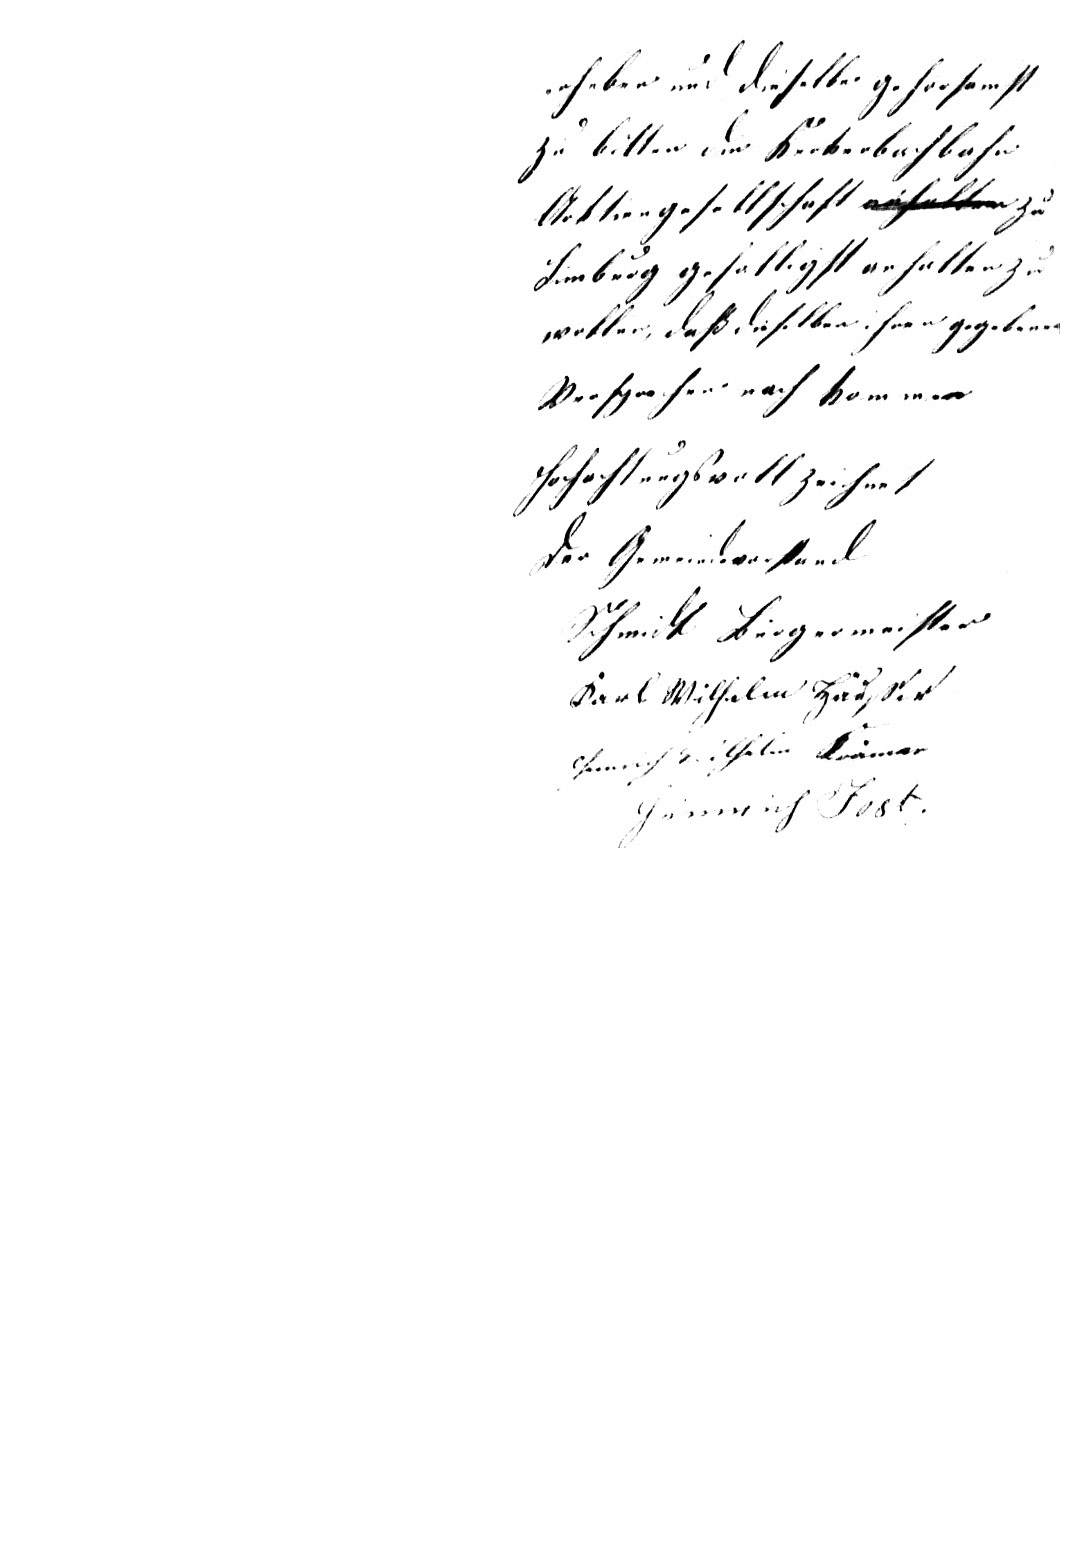 erheben und dieselbe gehorsamst
zu bitten die Kerkerbachbahn
Acktiengesellschaft anhalten zu
Limburg gefälligst anhalten zu
wollen, daß dieselben ihren gegebenen
Versprechen nach kommen
Hochachtungsvoll zeichnet
Der Gemeindevorstand
Schmidt Bürgermeister
Karl Wilhelm Häußer
Heinrich Wilhelm Krämer
Heinrich Jost.